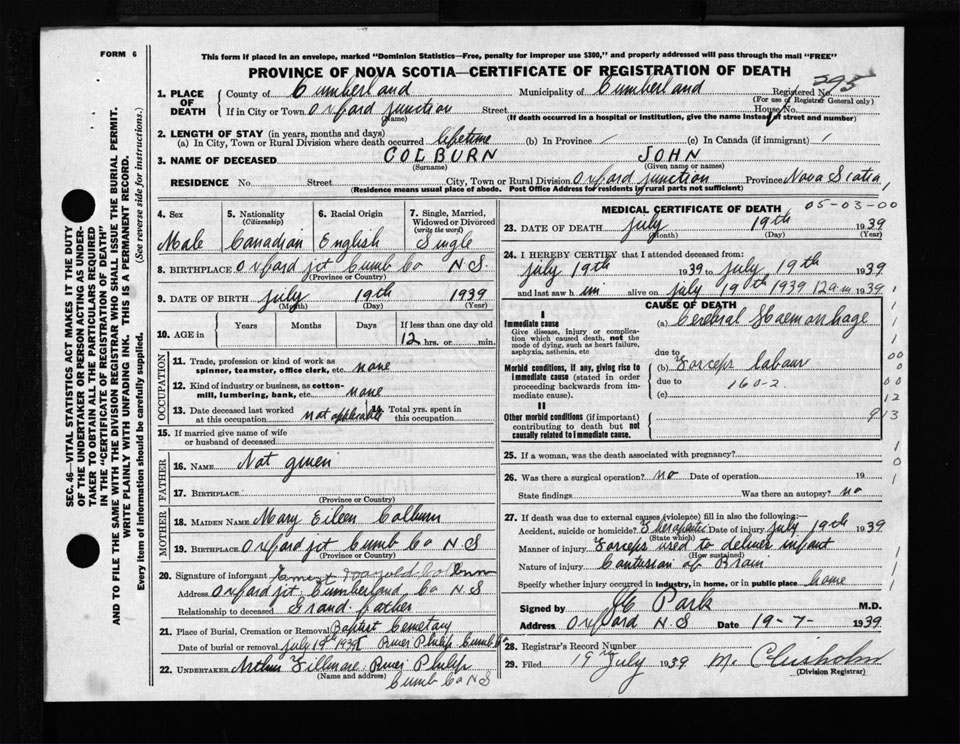 FORM 6
This form if placed in an envelope, marked "Dominion Statistics—Free, penalty for improper use $300," and properly addressed will pass through the mail "FREE"
PROVINCE OF NOVA SCOTIA—CERTIFICATE OF REGISTRATION OF DEATH
SEC. 46—VITAL STATISTICS ACT MAKES IT THE DUTY
OF THE UNDERTAKER OR PERSON ACTING AS UNDER-
TAKER TO OBTAIN ALL THE PARTICULARS REQUIRED
IN THE "CERTIFICATE OF REGISTRATION OF DEATH"
AND TO FILE THE SAME WITH THE DIVISION REGISTRAR WHO SHALL ISSUE THE BURIAL PERMIT.
WRITE PLAINLY WITH UNFADING INK. THIS IS A PERMANENT RECORD.
Every item of information should be carefully supplied. (See reverse side for instructions.)
1. PLACE OF DEATH
County of Cumberland Municipality of Cumberland Registered No. 395
(For use of Registrar General only)
If in City or Town Oxford Junction Street House No.
(Name) (If death occurred in a hospital or institution, give the name instead of street and number)
2. LENGTH OF STAY (in years, months and days)
(a) In City, Town or Rural Division where death occurred lifetime (b) In Province / (c) In Canada (if immigrant) /
3. NAME OF DECEASED COLBURN JOHN
(Surname) (Given name or names)
RESIDENCE No. Street City, Town or Rural Division Oxford Junction Province Nova Scotia
(Residence means usual place of abode. Post Office Address for residents in rural parts not sufficient)
4. Sex 5. Nationality (Citizenship) 6. Racial Origin 7. Single, Married, Widowed or Divorced (write the word)
Male Canadian English Single
8. BIRTHPLACE Oxford Jct Cumb Co N.S.
(Province or Country)
9. DATE OF BIRTH July 19th 1939
(Month) (Day) (Year)
10. AGE in Years Months Days If less than one day old
12 hrs. or min.
OCCUPATION
11. Trade, profession or kind of work as
spinner, teamster, office clerk, etc. none
12. Kind of industry or business, as cotton-
mill, lumbering, bank, etc. none
13. Date deceased last worked
at this occupation not applicable 14. Total yrs. spent in this occupation
15. If married give name of wife
or husband of deceased
FATHER
16. NAME Not given
17. BIRTHPLACE
(Province or Country)
MOTHER
18. MAIDEN NAME Mary Eileen Colburn
19. BIRTHPLACE Oxford Jct Cumb Co N S
(Province or Country)
20. Signature of informant Ernest Colburn
Address Oxford Jct. Cumberland Co N.S
Relationship to deceased Grand father
21. Place of Burial, Cremation or Removal Baptist Cemetary
Date of burial or removal July 19th 1939 River Philip Cumb Co
22. UNDERTAKER Arthur Fillmore River Philip
(Name and address) Cumb Co N S
MEDICAL CERTIFICATE OF DEATH 05-03-00
23. DATE OF DEATH July 19th 1939
(Month) (Day) (Year)
24. I HEREBY CERTIFY that I attended deceased from:
July 19th 1939 to July 19th 1939
and last saw him alive on July 19th 1939 12 a.m. 1939
CAUSE OF DEATH
I
Immediate cause
Give disease, injury or complica-
tion which caused death, not the
mode of dying, such as heart failure,
asphyxia, asthenia, etc
(a) Cerebral Haemorrhage
due to
Morbid conditions, if any, giving rise to
immediate cause (stated in order
proceeding backwards from im-
mediate cause).
(b) Forceps Labour
due to 160-2
(c)
II
Other morbid conditions (if important)
contributing to death but not
causally related to immediate cause.
25. If a woman, was the death associated with pregnancy?
26. Was there a surgical operation? no Date of operation 19
State findings Was there an autopsy? no
27. If death was due to external causes (violence) fill in also the following:—
Accident, suicide or homicide? Therapeutic Date of injury July 19th 1939
(State which)
Manner of injury Forceps used to deliver infant
(How sustained)
Nature of injury Contusion of Brain
Specify whether injury occurred in industry, in home, or in public place home
Signed by Park M.D.
Address Oxford N S Date 19-7- 1939
28. Registrar's Record Number
29. Filed 19 July 1939 Chisholm
(Division Registrar)